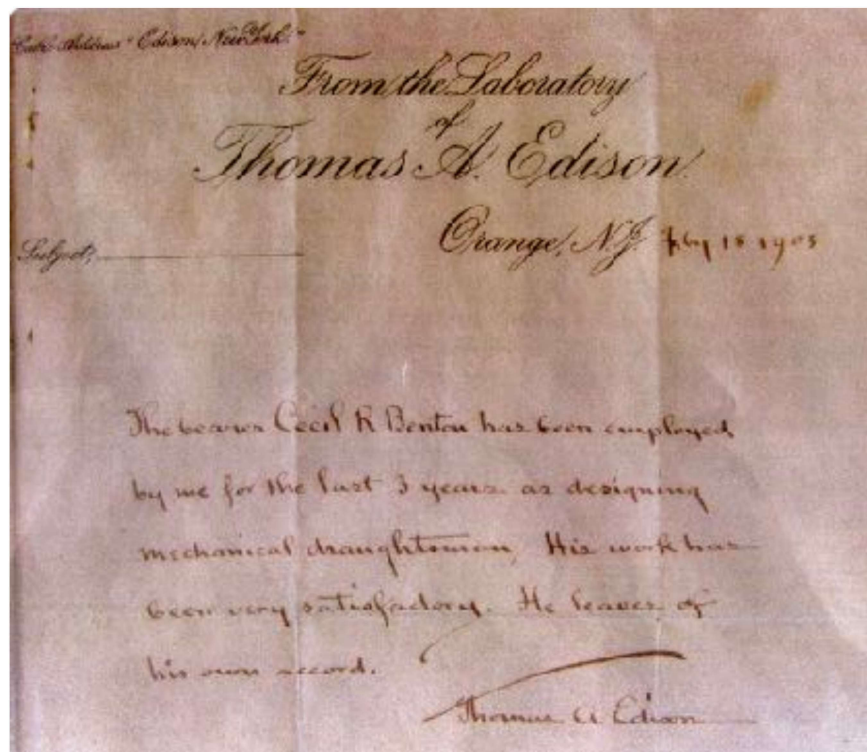 "Cable Address "Edison, New York."
From the Laboratory
of
Thomas A. Edison.
Orange, N.J. Feby 15 1905
Subject,
The bearer Cecil K Benton has been employed
by me for the last 3 years as designing
mechanical draughtsman, His work has
been very satisfactory. He leaves of
his own accord.
Thomas A Edison